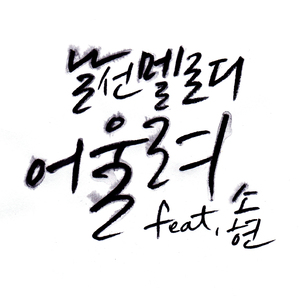 낯선멜로디
어울려
feat, 소현